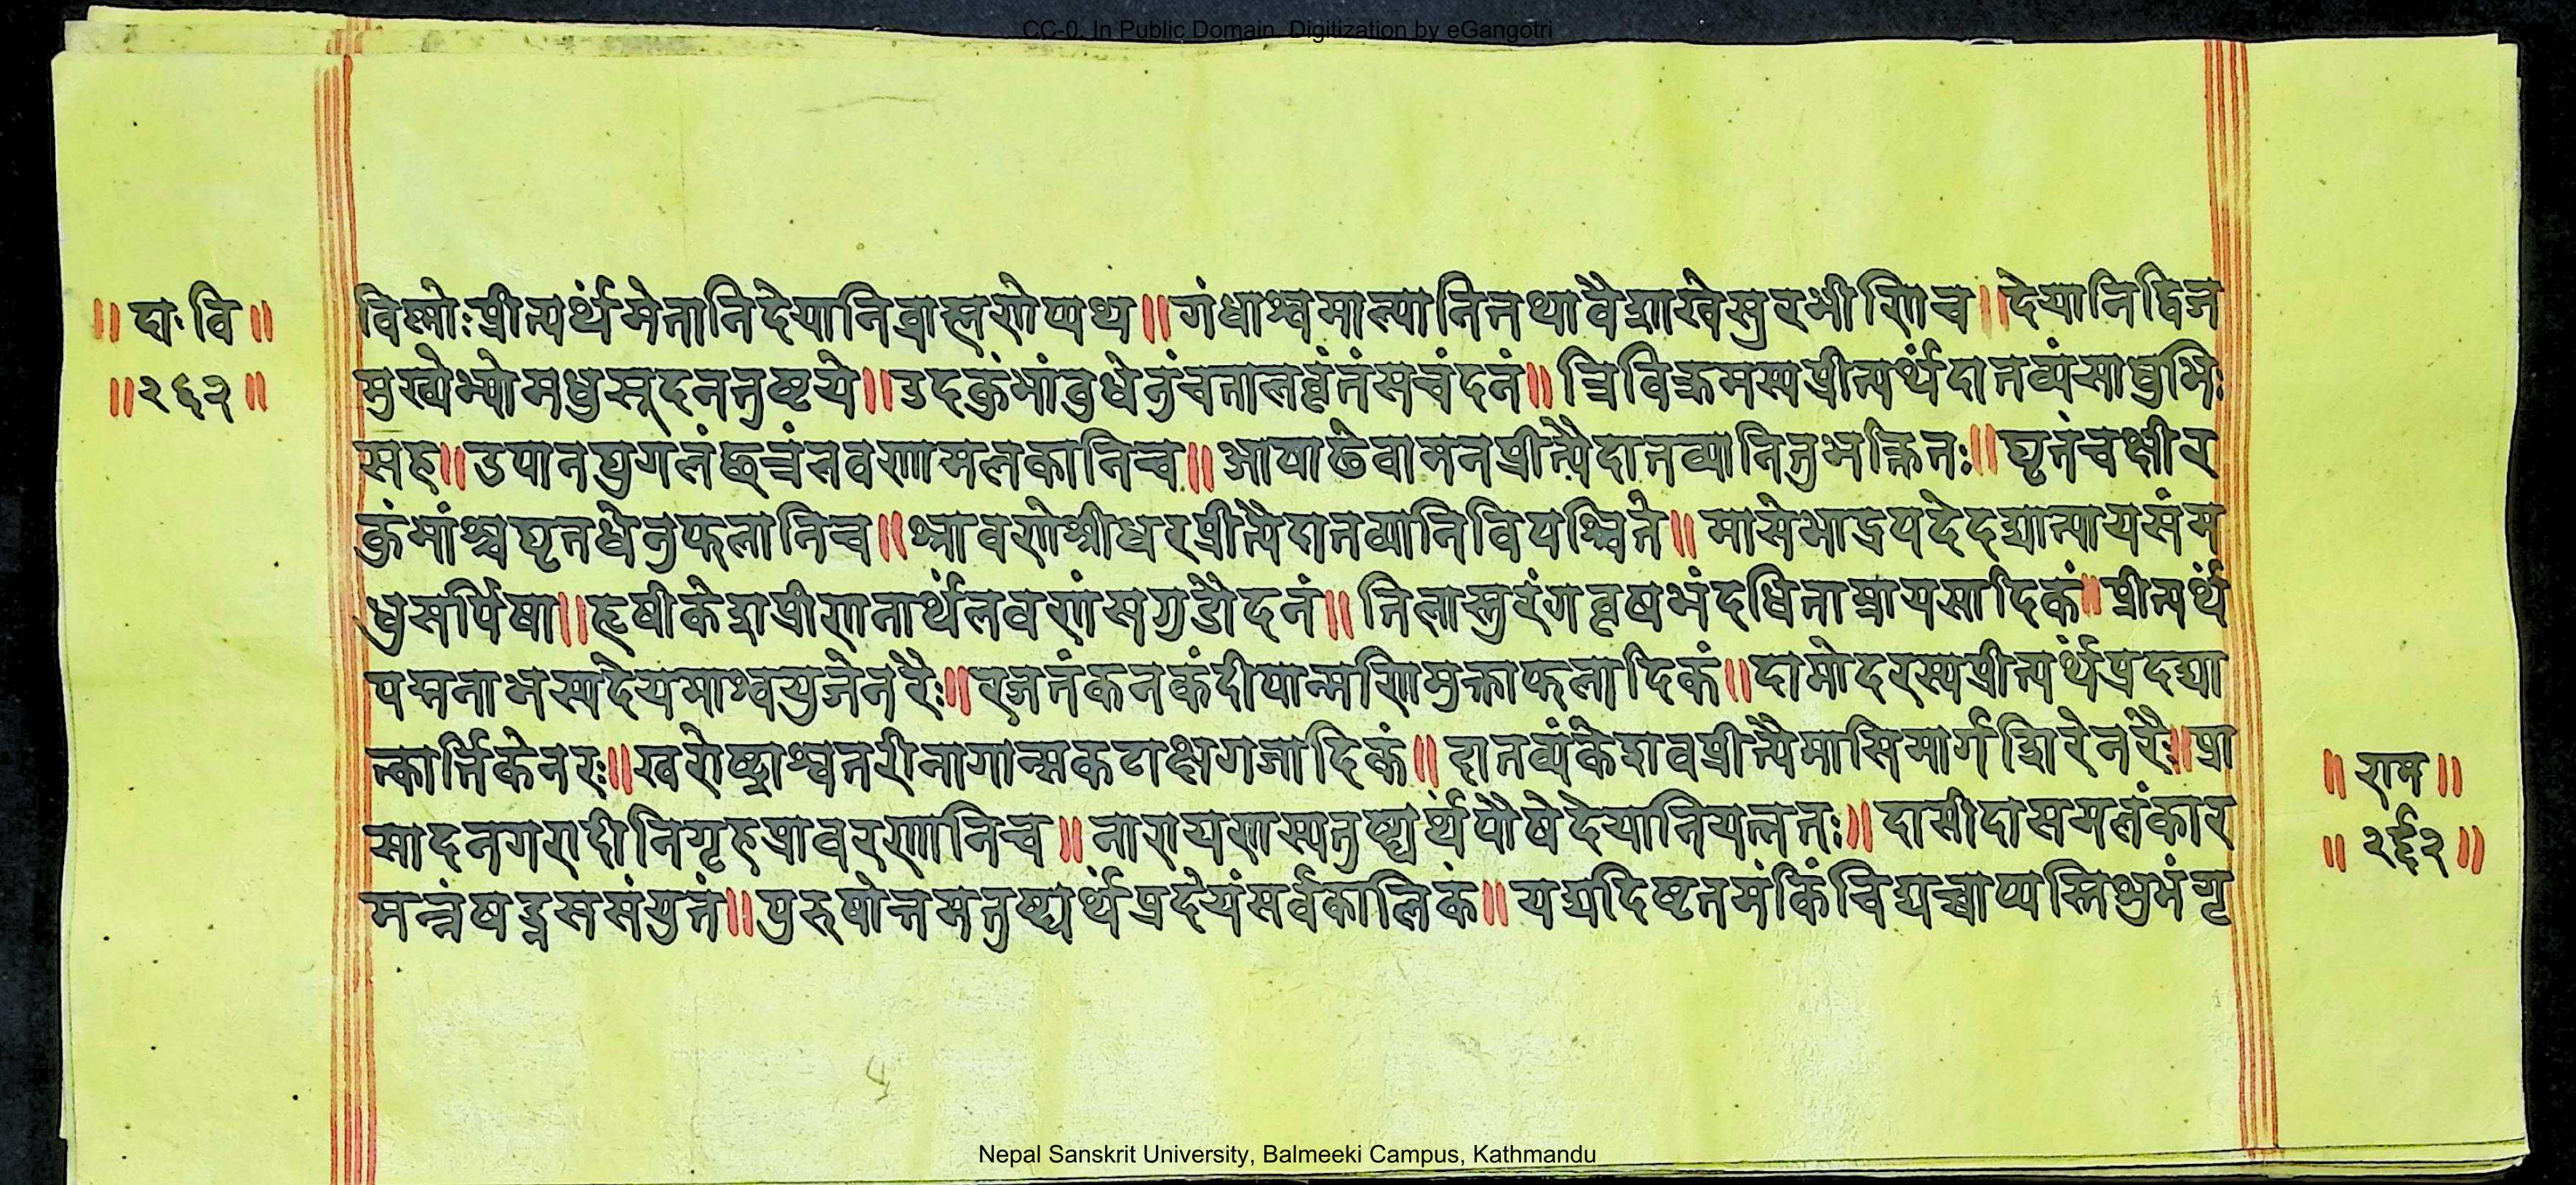 CC-0. In Public Domain. Digitization by eGangotri
॥ दा॰ वि ॥
॥ २६२ ॥
विष्णोः प्रीत्यर्थमेतानि देयानि ब्राह्मणेष्वथ ॥ गंधाश्च माल्यानि तथा वैशाखे सुरभीणि च ॥ देयानि द्विज
मुख्येभ्यो मधुसूदनतुष्टये ॥ उदकुंभांबुधेनुं च तालवृंतं सचंदनं ॥ त्रिविक्रमस्य प्रीत्यर्थं दातव्यं साधुभिः
सह ॥ उपानयुगलं छत्रं लवणामलकानि च ॥ आषाढे वामनप्रीत्यै दातव्यानि तु भक्तितः ॥ घृतं च क्षीर
कुंभांश्च घृतधेनुफलानि च ॥ श्रावणे श्रीधरप्रीत्यै दातव्यानि विपश्चिते ॥ मासे भाद्रपदे दद्यात्पायसं म
धुसर्पिषा ॥ हृषीकेशप्रीणनार्थं लवणं सगुडौदनं ॥ तिलास्तुरंगवृषभं दधिताम्रायसादिकं ॥ प्रीत्यर्थं
पद्मनाभस्य देयमाश्वयुजे नरैः ॥ रजतं कनकं दीपान्मणिमुक्ताफलादिकं ॥ दामोदरस्य प्रीत्यर्थं प्रदद्या
त्कार्त्तिके नरः ॥ खरोष्ट्राश्वतरीनागान्मकटाक्षगजादिकं ॥ दातव्यं केशवप्रीत्यै मासि मार्गशिरे नरैः ॥ प्रा
सादनगरादीनि गृहप्रावरणानि च ॥ नारायणस्य तुष्ट्यर्थं पौषे देयानि यत्नतः ॥ दासीदासमलंकार
मन्नं षड्रससंयुतं ॥ पुरुषोत्तमतुष्ट्यर्थं प्रदेयं सर्वकालिकं ॥ यद्यदिष्टतमं किंचिद्यच्चाप्यस्ति शुभं गृ
॥ राम ॥
॥ २६२ ॥
Nepal Sanskrit University, Balmeeki Campus, Kathmandu